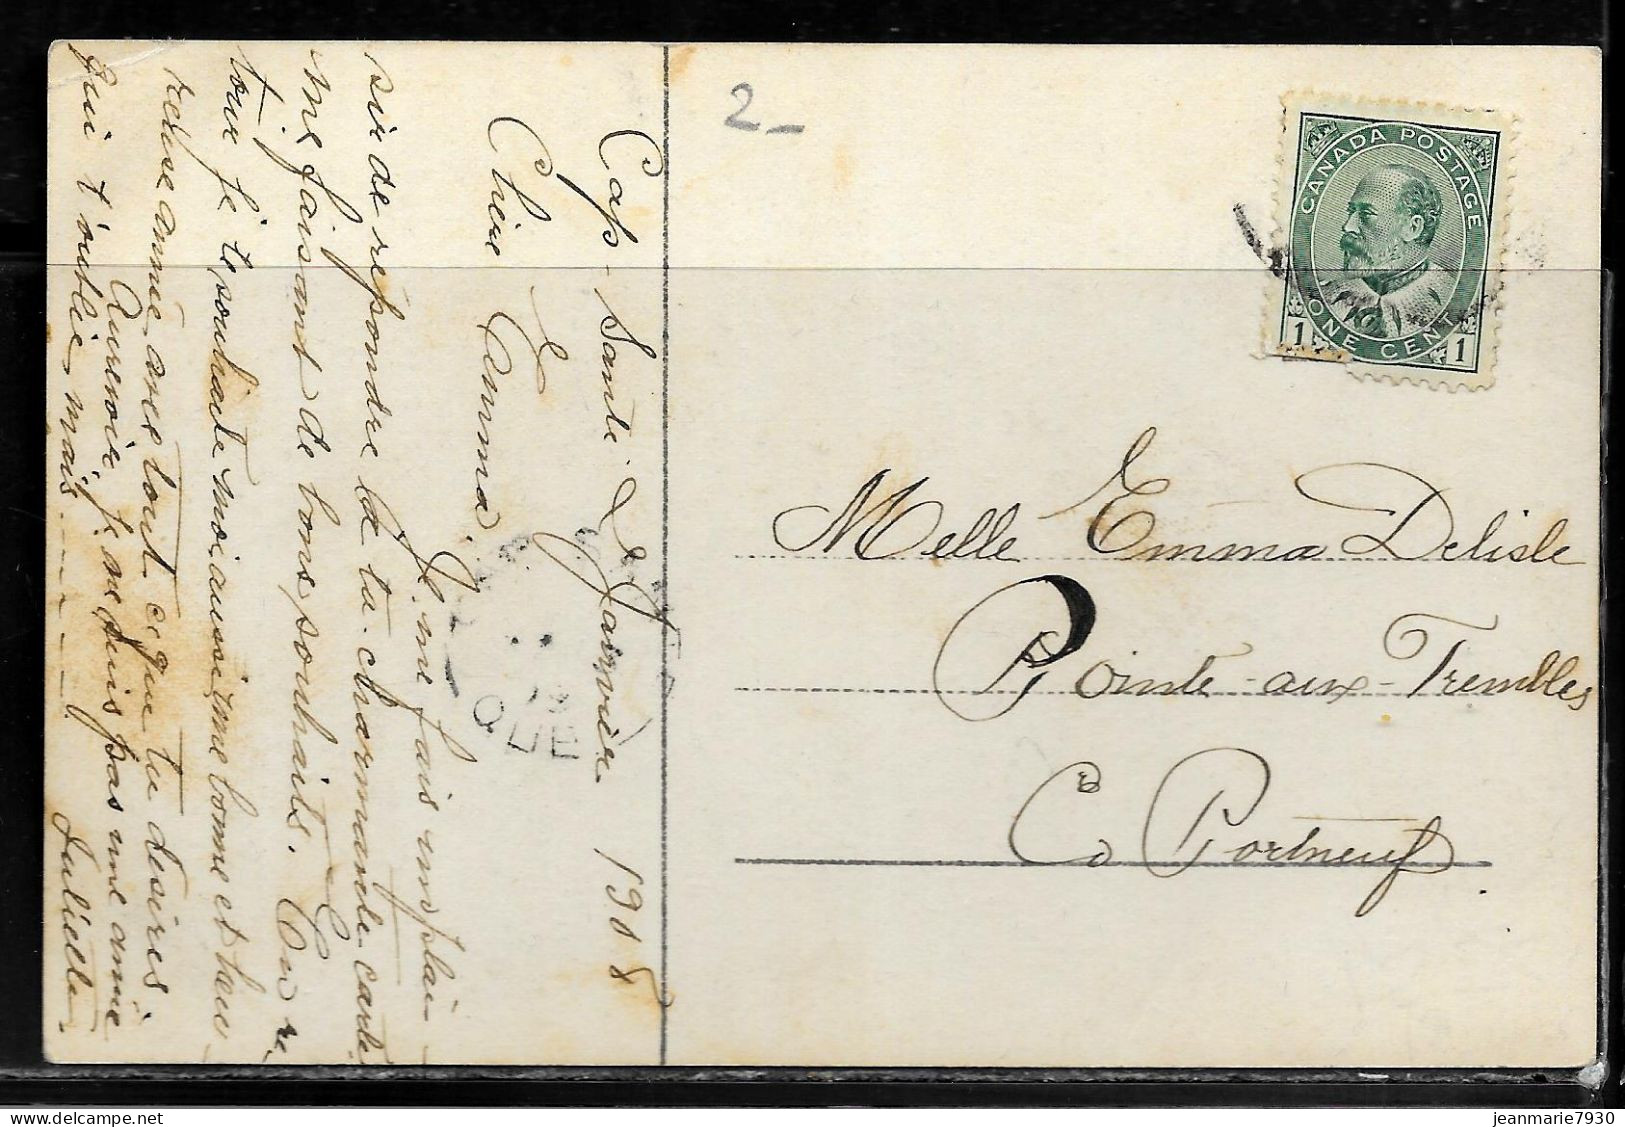 2-
CANADA POSTAGE
1 ONE CENT 1
Cap-Santé Janvier 1908
Chère Emma
Je me fais un plai-
sir de repondre la ta charmante carte
me faisant de bons souhaits. En re
tour je te souhaite moi aussi une bonne et heu
reuse année avec tout ce que tu desires
Aurevoir, je ne suis pas une amie
qui t'oublie mais......
Juliette.
QUE
Melle Emma Delisle
Pointe-aux-Trembles
Co Portneuf
jeanmarie7930